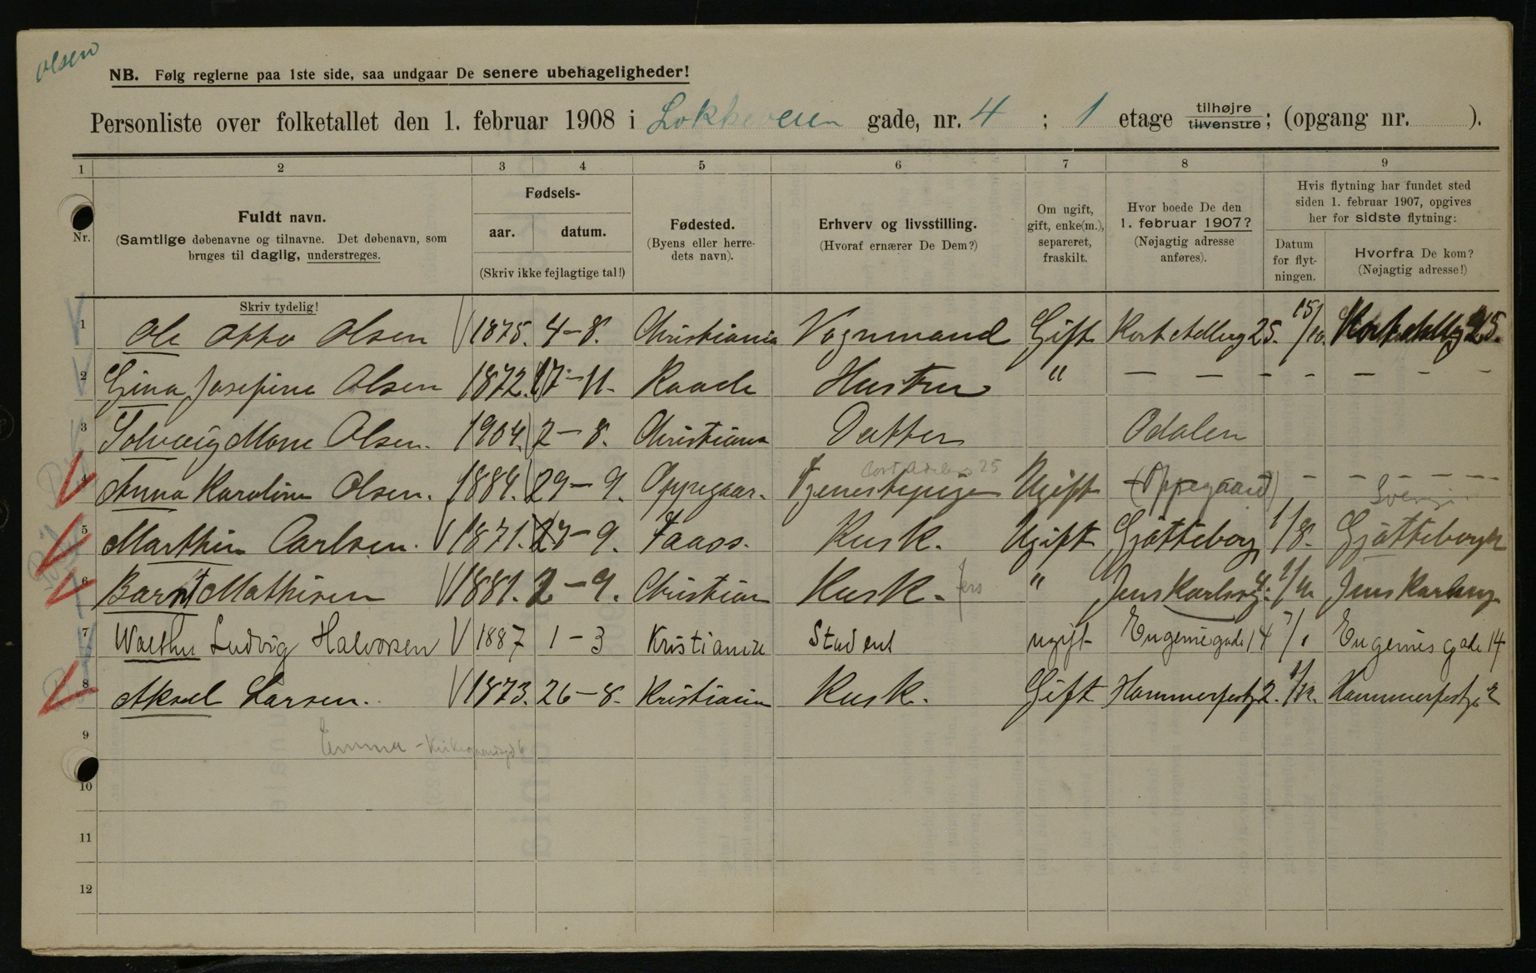 Olsen
NB. Følg reglerne paa 1ste side, saa undgaar De senere ubehageligheder!
Personliste over folketallet den 1. februar 1908 i Løkkeveien gade, nr. 4 ; 1 etage tilhøjre tilvenstre; (opgang nr. ).
1 2 3 4 5 6 7 8 9
Nr.
Fuldt navn.
(Samtlige døbenavne og tilnavne. Det døbenavn, som
bruges til daglig, understreges.
Skriv tydelig!
Fødsels-
aar. datum.
(Skriv ikke fejlagtige tal!)
Fødested.
(Byens eller herre-
dets navn).
Erhverv og livsstilling.
(Hvoraf ernærer De Dem?)
Om ugift,
gift, enke(m.),
separeret,
fraskilt.
Hvor boede De den
1. februar 1907?
(Nøjagtig adresse
anføres).
Hvis flytning har fundet sted
siden 1. februar 1907, opgives
her for sidste flytning:
Datum
for flyt-
ningen.
Hvorfra De kom?
(Nøjagtig adresse!)
1 Ole Otto Olsen 1875. 4-8. Christiania Vognmand Gift Kort Adelerg 25. 15/10. Kort Adelerg 25.
2 Gina Josefine Olsen 1872. 17-11. Raade Hustru " — — — — — — —
3 Solveig Mone Olsen. 1904. 2-8. Christiania Datter Odalen
Cort Adelers 25
4 Anna Karoline Olsen. 1884. 29-9. Oppegaar. Tjenestepige Ugift (Oppegaard) — — — — —
Sverige
5 Marthin Carlsen. 1871. 27-9. Faaos. Kusk. Ugift Gjøtteborg 1/8. Gjøtteborg
6 Barnt Mathisen 1881. 2-9. Christian Kusk. " Jens Karlsg.
7 Walther Ludvig Halvorsen 1887 1-3 Kristiania Student ugift Eugeniegade 14 7/1 Eugenies gade 14
8 Aksel Larsen. 1873. 26-8. Kristiania Kusk. Gift Hammerfestg 2. Hammerfestg 2
9
Emma -
10
11
12